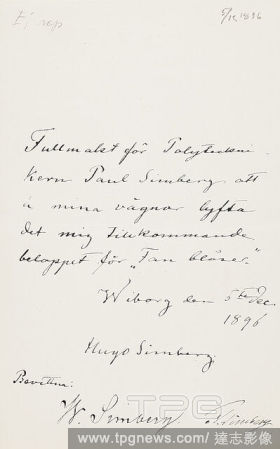 Ej rep
5/12 1896
Fullmakt för Polytekni-
kern Paul Simberg att
å mina vägnar lyfta
det mig tillkommande
beloppet för „Tan blåser".
Wiborg den 5te Dec.
1896
Hugo Simberg.
Bevittna:
W. Simberg. Simberg
TPG
www.tpgnews.com/達志影像